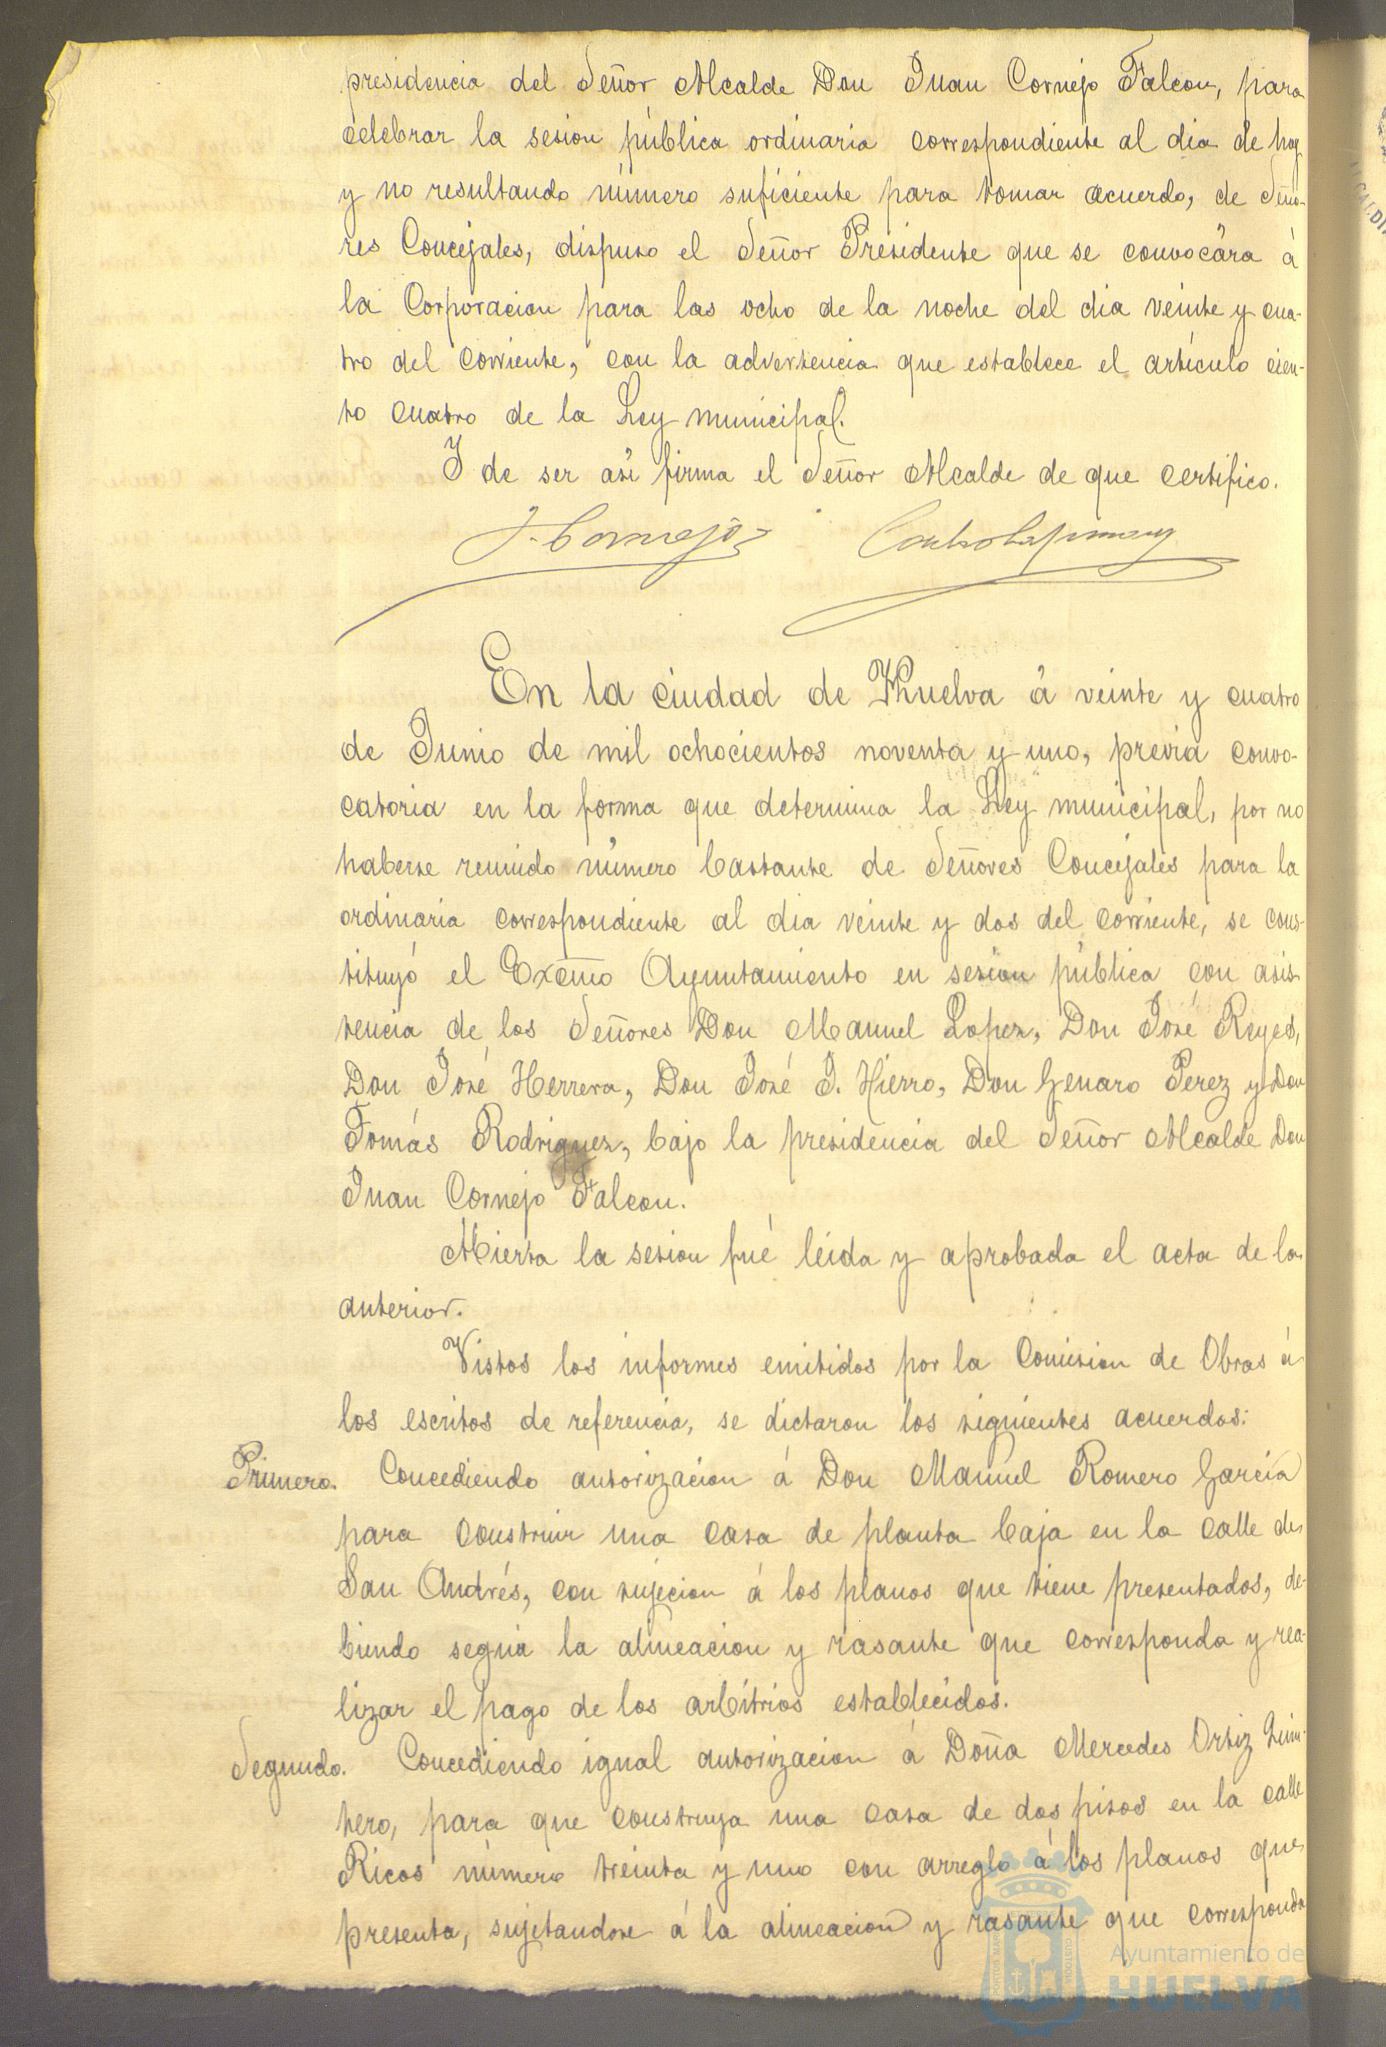 presidencia del Señor Alcalde Don Juan Cornejo Falcon, para
celebrar la sesion pública ordinaria correspondiente al dia de hoy
y no resultando número suficiente para tomar acuerdo, de Seño-
res Concejales, dispuso el Señor Presidente que se convocára á
la Corporacion para las ocho de la noche del dia veinte y cua-
tro del corriente, con la advertencia que establece el artículo cien-
to cuatro de la Ley municipal.
Y de ser así firma el Señor Alcalde de que certifico.
J. Cornejo
En la ciudad de Huelva á veinte y cuatro
de Junio de mil ochocientos noventa y uno, previa convo-
catoria en la forma que determina la Ley municipal, por no
haberse reunido número bastante de Señores Concejales para la
ordinaria correspondiente al dia veinte y dos del corriente, se cons-
tituyó el Excmo Ayuntamiento en sesion pública con asis-
tencia de los Señores Don Manuel Lopez, Don José Reyes,
Don José Herrera, Don José J. Hierro, Don Genaro Perez y Don
Tomás Rodriguez, bajo la presidencia del Señor Alcalde Don
Juan Cornejo Falcon.
Abierta la sesion fué leida y aprobada el acta de la
anterior.
Vistos los informes emitidos por la Comision de Obras á
los escritos de referencia, se dictaron los siguientes acuerdos:
Primero. Concediendo autorizacion á Don Manuel Romero García
para construir una casa de planta baja en la calle de
San Andrés, con sujecion á los planos que tiene presentados, de-
biendo seguir la alineacion y rasante que corresponda y rea-
lizar el pago de los arbitrios establecidos.
Segundo. Concediendo igual autorizacion á Doña Mercedes Ortiz
para que construya una casa de dos pisos en la calle
Ricos número treinta y uno con arreglo á los planos que
presenta, sujetandose á la alineacion y rasante que corresponda
Ayuntamiento de
HUELVA